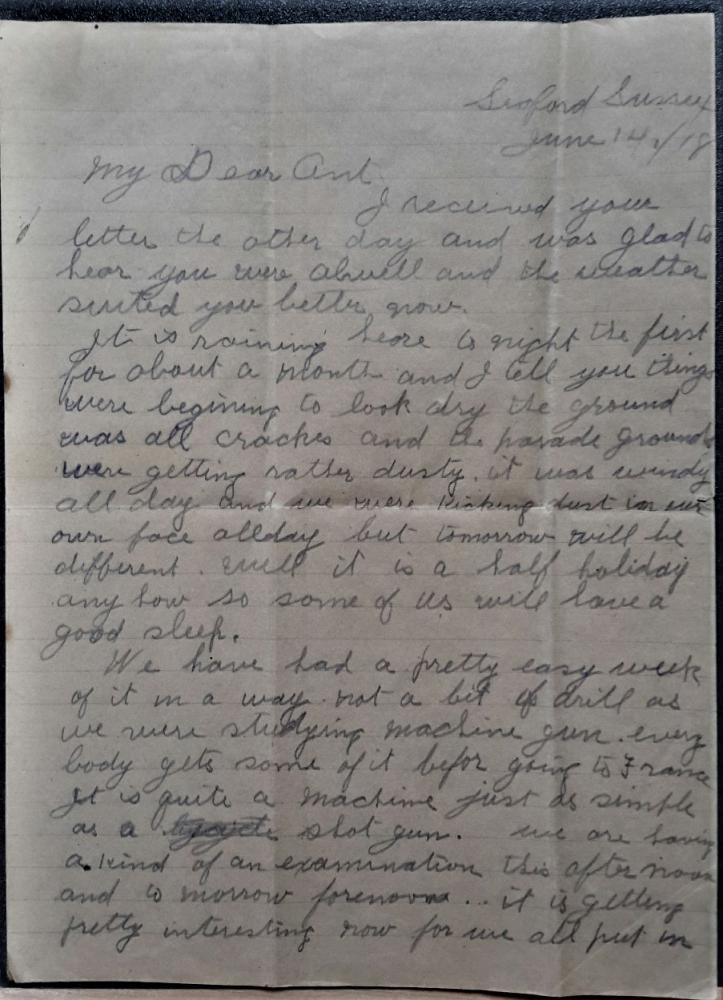 Seaford Sussex
June 14./18
My Dear Ant.
I received your
letter the other day and was glad to
hear you were alwell and the weather
suited you better now.
It is raining heare to night the first
for about a month and I tell you things
were begining to look dry the ground
was all craches and the parade grounds
were getting rather dusty. it was windy
all day and we were kicking dust in our
own face allday but tomorrow will be
different. well it is a half holiday
any how so some of us will have a
good sleep.
We have had a pretty easy week
of it in a way. not a bit of drill as
we were studying machine gun. every
body gets some of it befor going to France
It is quite a machine just as simple
as a shot gun. we are having
a kind of an examination this after noon
and to morrow forenoon... it is getting
pretty interesting now for we all put in